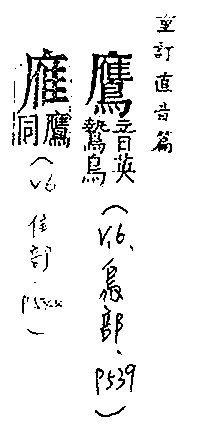 重訂直音篇
鷹 音英 鷙鳥 (V.6, 鳥部, p539)
䧹 鷹同 (V6 隹部